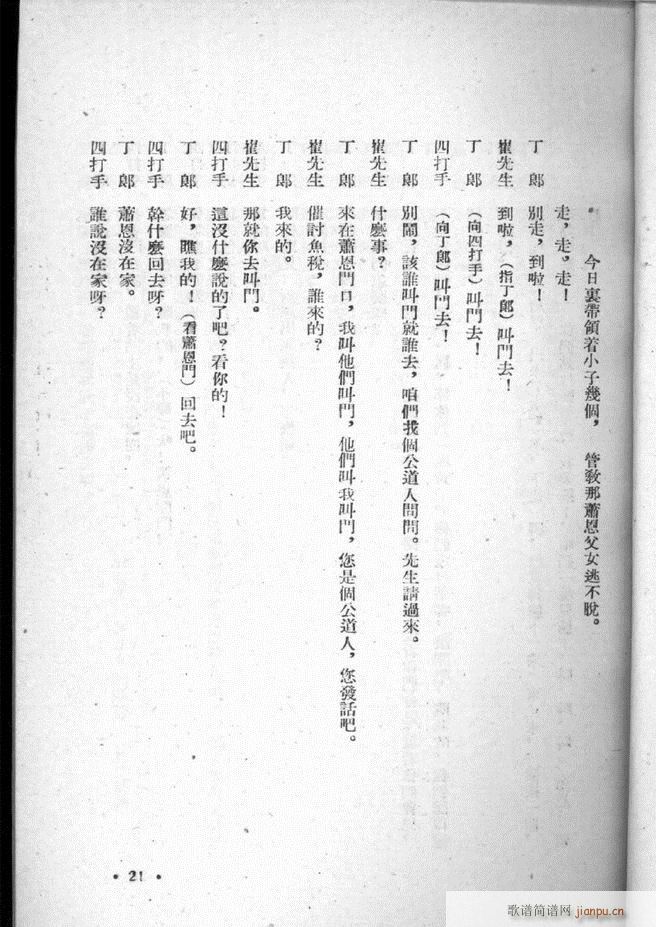 今日裏帶領着小子幾個，　管教那蕭恩父女逃不脫。
走，走，走！
丁　郎　別走，到啦！
崔先生　到啦，（指丁郎）叫門去！
丁　郎　（向四打手）叫門去！
四打手　（向丁郎）叫門去！
丁　郎　別鬧，該誰叫門就誰去，咱們找個公道人問問。先生請過來。
崔先生　什麼事？
丁　郎　來在蕭恩門口，我叫他們叫門，他們叫我叫門，您是個公道人，您發話吧。
崔先生　催討魚稅，誰來的？
丁　郎　我來的。
崔先生　那就你去叫門。
四打手　這沒什麼說的了吧？看你的！
丁　郎　好，瞧我的！（看蕭恩門）回去吧。
四打手　幹什麼回去呀？
丁　郎　蕭恩沒在家。
四打手　誰說沒在家呀？
• 21 •
歌谱简谱网 jianpu.cn